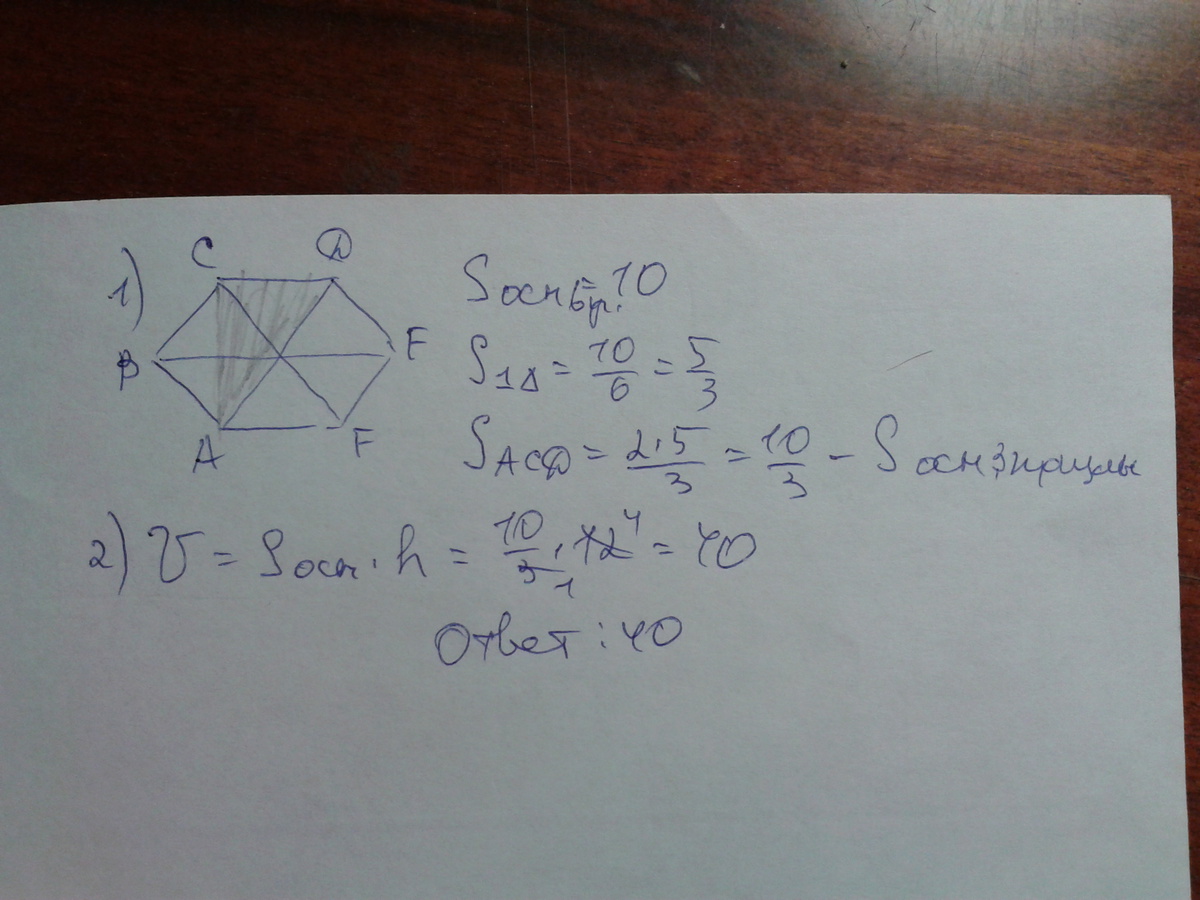 1)
C D
B F
A F
Sосн6уг. = 10
S1Δ = 10/6 = 5/3
SACD = 2·5/3 = 10/3 - Sосн 3 призмы
2) V = Sосн. · h = 10/3 1 · 12 4 = 40
Ответ: 40